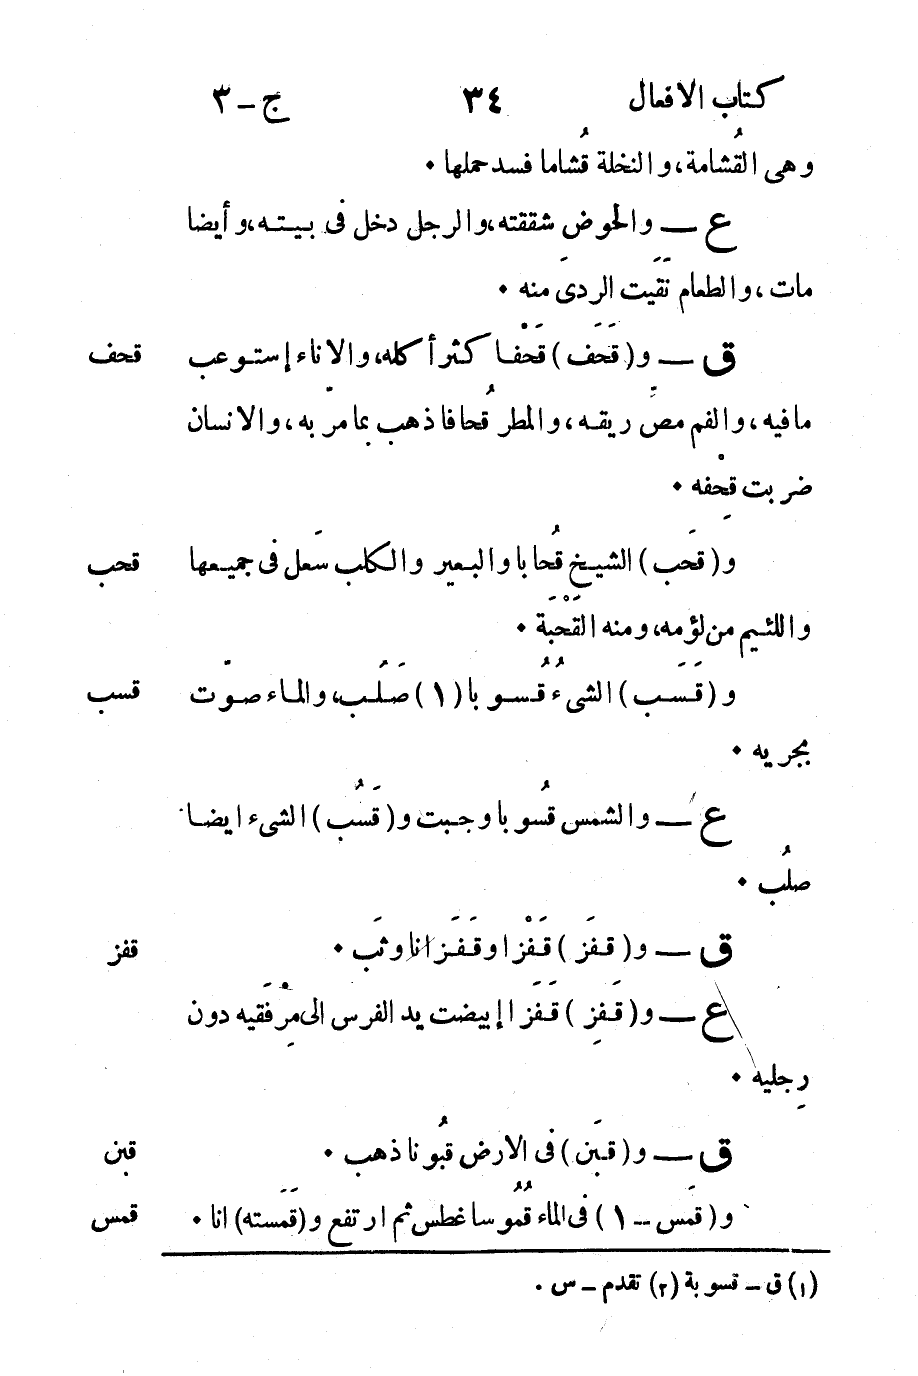 كتاب الافعال ٣٤ ج – ٣
وهى القُشامة، والنخلة قُشاما فسد حملها ٠
ع — والحوض شققته، والرجل دخل فى بيته، وأيضا
مات، والطعام نَقَّيت الردئ منه ٠
ق — و(قَحَف) قَحْفا كثر أكله، والاناء إستوعب قحف
مافيه، والفم مصّ ريقه، والمطر قُحافا ذهب بما مرّ به، والانسان
ضربت قِحْفه ٠
و(قحَب) الشيخ قُحابا والبعير والكلب سَعل فى جميعها قحب
واللئيم من لؤمه، ومنه القَحْبَة ٠
و(قَسَب) الشىء قُسُوبا (١) صَلُب، والماء صوّت قسب
بجريه ٠
ع — والشمس قسُوبا وجبت و(قَسُب) الشىء ايضا
صلُب ٠
ق — و(قفَز) قَفْزا وقَفَزانا وثَب ٠ قفز
ع — و(قَفِز) قَفَزا إبيضت يد الفرس الى مِرْفَقيه دون
رِجليه ٠
ق — و(قبَن) فى الارض قبُونا ذهب ٠ قبن
و(قمَس – ١) فى الماء قُمُوسا غطس ثم ارتفع و(قَمَسته) انا ٠ قمس
(١) ق – قسوبة (٢) تقدم – س ٠